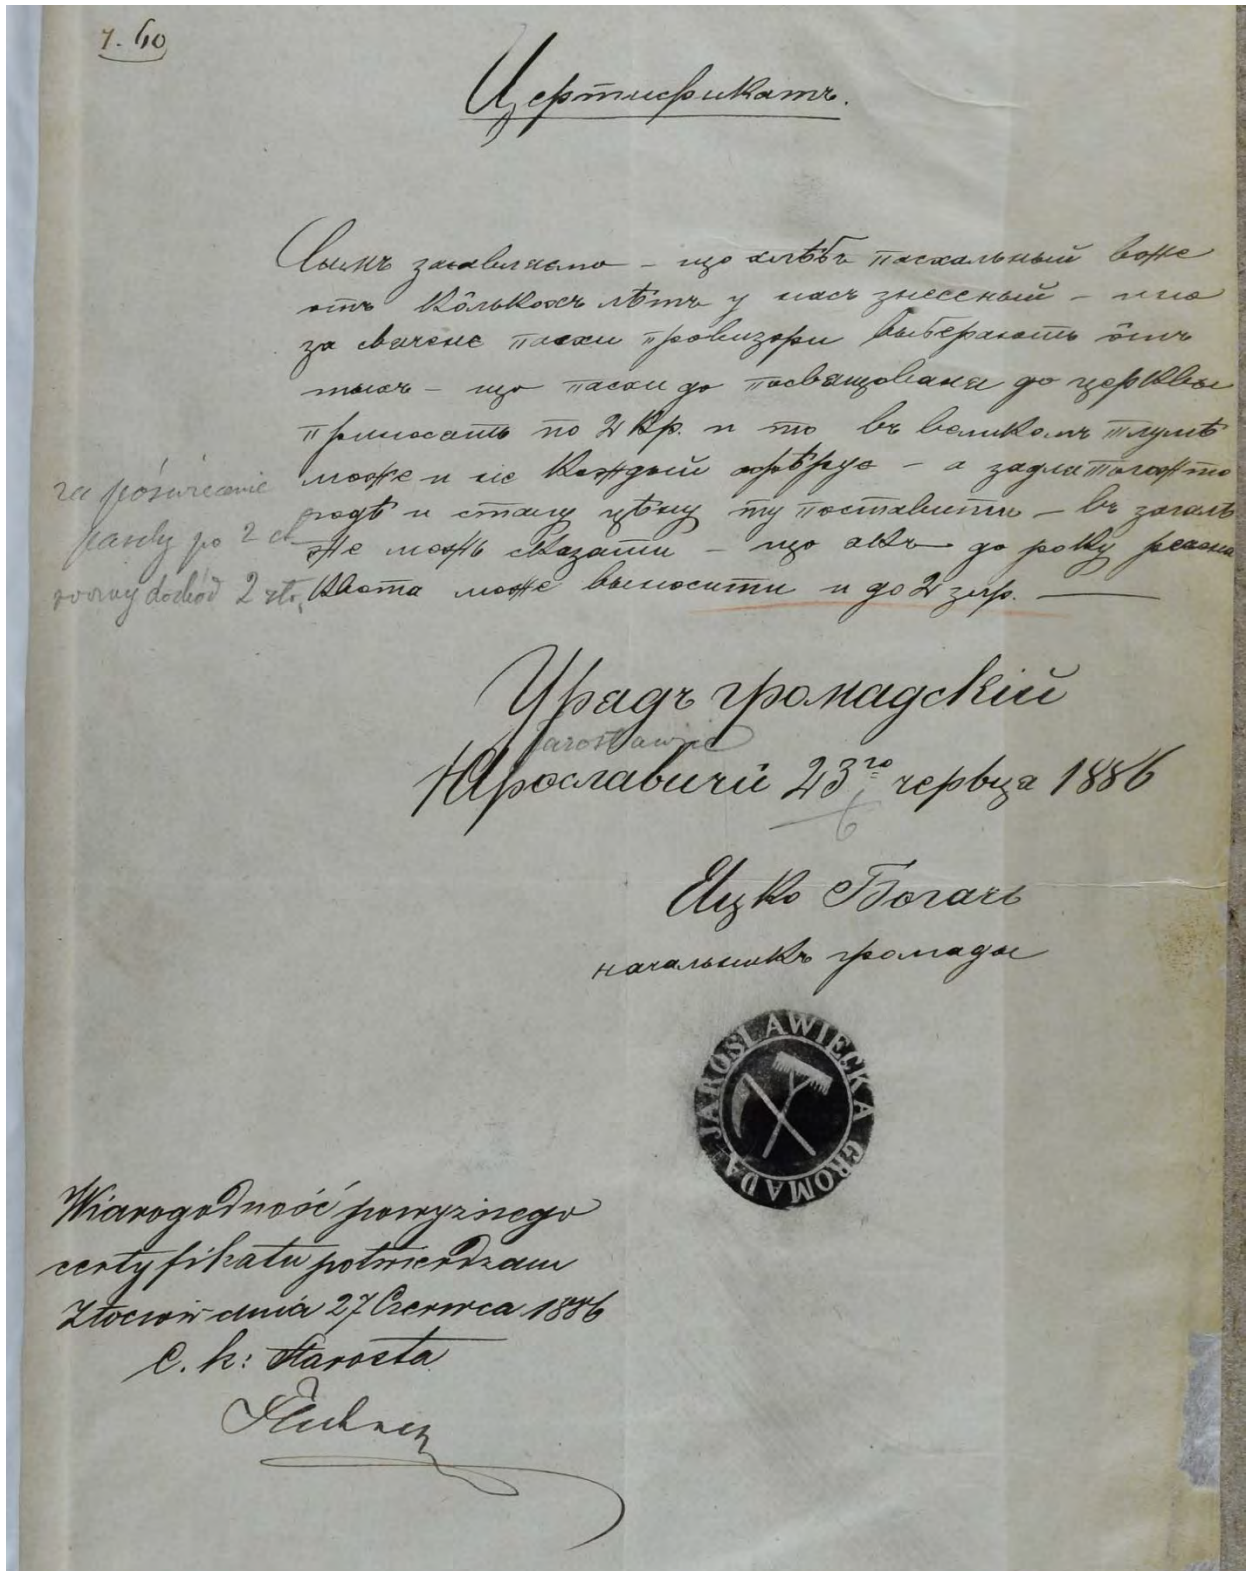 7. 40
Цертификатъ.
Сымъ заявляемо – що хлѣбъ пасхальный вже
отъ кôлькохъ лѣтъ у насъ знесеный – но
за свячене пасхи провизоры выберають ôтъ
тыхъ – що паски до посвящованя до церквы
приносятъ по 2 кр. и то въ великомъ тлумѣ
може и не каждый офѣрує – а задля того
и сталу цѣну ту поставити – въ загалѣ
же можь сказати – що якъ до року
квота може выносити и до 2 злр. —
za poświęcenie
paschy po 2 ct
roczny dochód 2 złr.
Урядъ громадскій
Jarosławice
Ярославичи 23го червця 1886
6
Яцко Богачъ
начальникъ громады
GROMADA JAROSŁAWIECKA
Wiarogodność powyższego
certyfikatu potwierdzam
Złoczów dnia 27 Czerwca 1886
C. k: Starosta